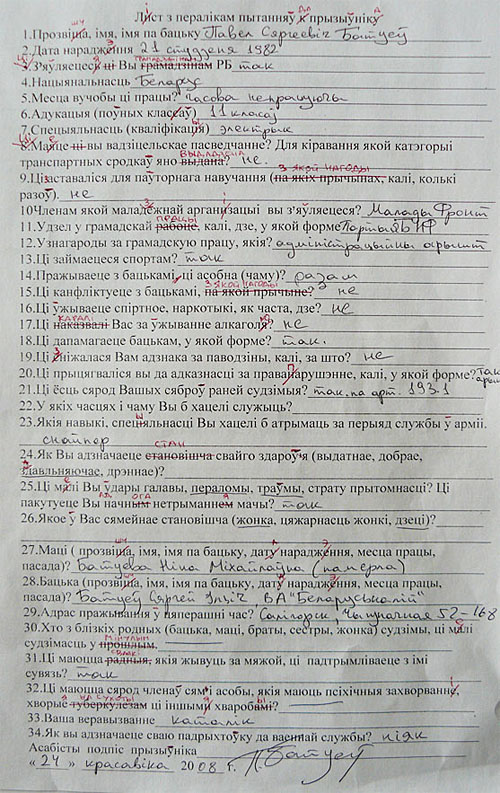 Ліст з пералікам пытанняў к прызыўніку
1.Прозвіща, імя, імя па бацьку Павел Сяргеевіч Батуеў
2.Дата нараджэння 21 студзеня 1982
3.З'яўляецеся ці Вы грамадзінам РБ так
4.Нацыянальнасць Беларус
5.Месца вучобы ці працы? часова непрацуючы
6.Адукацыя (поўных класаў) 11 класаў
7.Спецыяльнасць (кваліфікація) электрык
8.Маеце ні вы вадзіцельскае пасведчанне? Для кіравання якой катэгорыі
транспартных сродкаў яно выдана? не.
9.Ці заставаліся для паўторнага навучання (па якіх прычынах, калі, колькі
разоў). не
10Членам якой маладёжнай арганізацыі вы з'яўляецеся? Малады Фронт
11.Удзел у грамадскай рабоце, калі, дзе, у якой форме Партыя БНФ
12.Узнагароды за грамадскую працу, якія? адміністрацыйны арышт
13.Ці займаецеся спортам? так
14.Пражываеце з бацькамі, ці асобна (чаму)? разам
15.Ці канфліктуеце з бацькамі, па якой прычыне? не
16.Ці ўжываеце спіртное, наркотыкі, як часта, дзе? не
17.Ці наказвалі Вас за ўжыванне алкаголя? не
18.Ці дапамагаеце бацькам, у якой форме? так.
19.Ці зніжалася Вам адзнака за паводзіны, калі, за што? не
20.Ці прыцягваліся вы да адказнасці за праванарушэнне, калі, у якой форме? так
21.Ці ёсць сярод Вашых сяброў раней судзімыя? так. па арт. 193-1
22.У якіх часцях і чаму Вы б хацелі служыць?
23.Якія навыкі, спецыяльнасці Вы хацелі б атрымаць за перыяд службы ў арміі.
снайпер
24.Як Вы адзначаеце становішча свайго здароўя (выдатнае, добрае,
здавальняючае, дрэннае)?
25.Ці мелі Вы ўдары галавы, пераломы, траўмы, страту прытомнасці? Ці
пакутуеце Вы начным нетрыманнем мачы? так
26.Якое ў Вас сямейнае становішча (жонка, цяжарнасць жонкі, дзеці)?
27.Маці ( прозвіща, імя, імя па бацьку, дату нараджэння, месца працы,
пасада)? Батуева Ніна Міхайлаўна (памерла)
28.Бацька (прозвіща, імя, імя па бацьку, дату нараджэння, месца працы,
пасада)? Батуеў Сяргей ВА "Беларуськалій"
29.Адрас пражывання ў цяперашні час? Салігорск, 52-168
30.Хто з блізкіх родных (бацька, маці, браты, сёстры, жонка) судзімы, ці мелі
судзімасць у прошлым,
31.Ці маюцца радныя, якія жывуць за мяжой, ці падтрымліваеце з імі
сувязь? так
32.Ці маюцца сярод членаў сям'і асобы, якія маюць псіхічныя захворванні,
хворые туберкулёзам ці іншымі хваробамі?
33.Ваша веравызванне католік
34.Як вы адзначаеце сваю падрыхтоўку да ваеннай службы? ніяк
Асабісты подпіс прызыўніка П. Батуеў
« 24 » красавіка 2008 г.